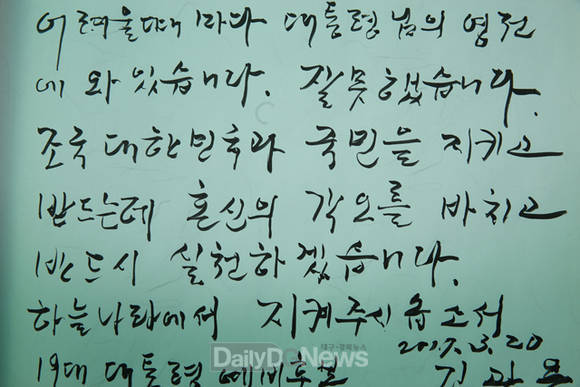 어려울때 마다 대통령님의 영전
에 와 있습니다. 잘못했습니다.
조국 대한민국과 국민을 지키고
받드는데 혼신의 각오를 바치고
반드시 실천하겠습니다.
하늘나라에서 지켜주시옵소서
2017. 3. 20
19대 대통령 예비후보
대구·경북뉴스
DailyDGNews